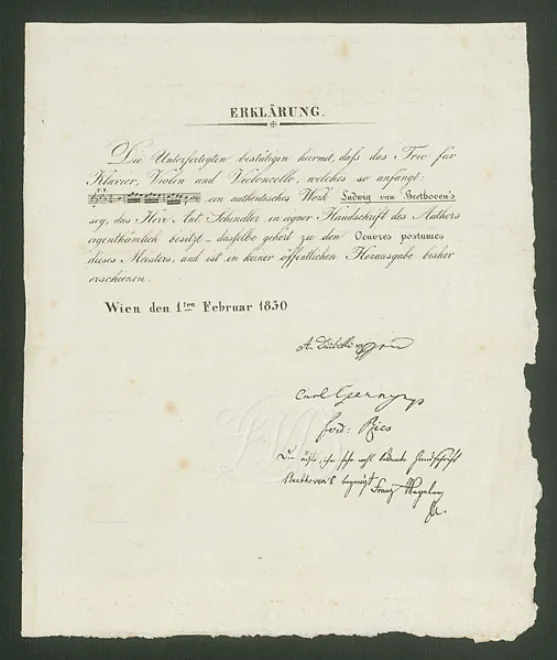 ERKLÄRUNG.
Die Unterfertigten bestätigen hiermit, daſs das Trio für
Klavier, Violin und Violoncello, welches so anfängt:
ein authentisches Werk Ludwig van Beethoven's
sey, das Herr Ant. Schindler in eigner Handschrift des Authors
eigenthümlich besitzt – dasſelbe gehört zu den Oeuvres postumes
dieses Meisters, und ist in keiner öffentlichen Herausgabe bisher
erschienen.
Wien den 1ten Februar 1830
A.
Carl Czerny
ferd: Ries
Beethoven's bezeugt Franz Wegeler